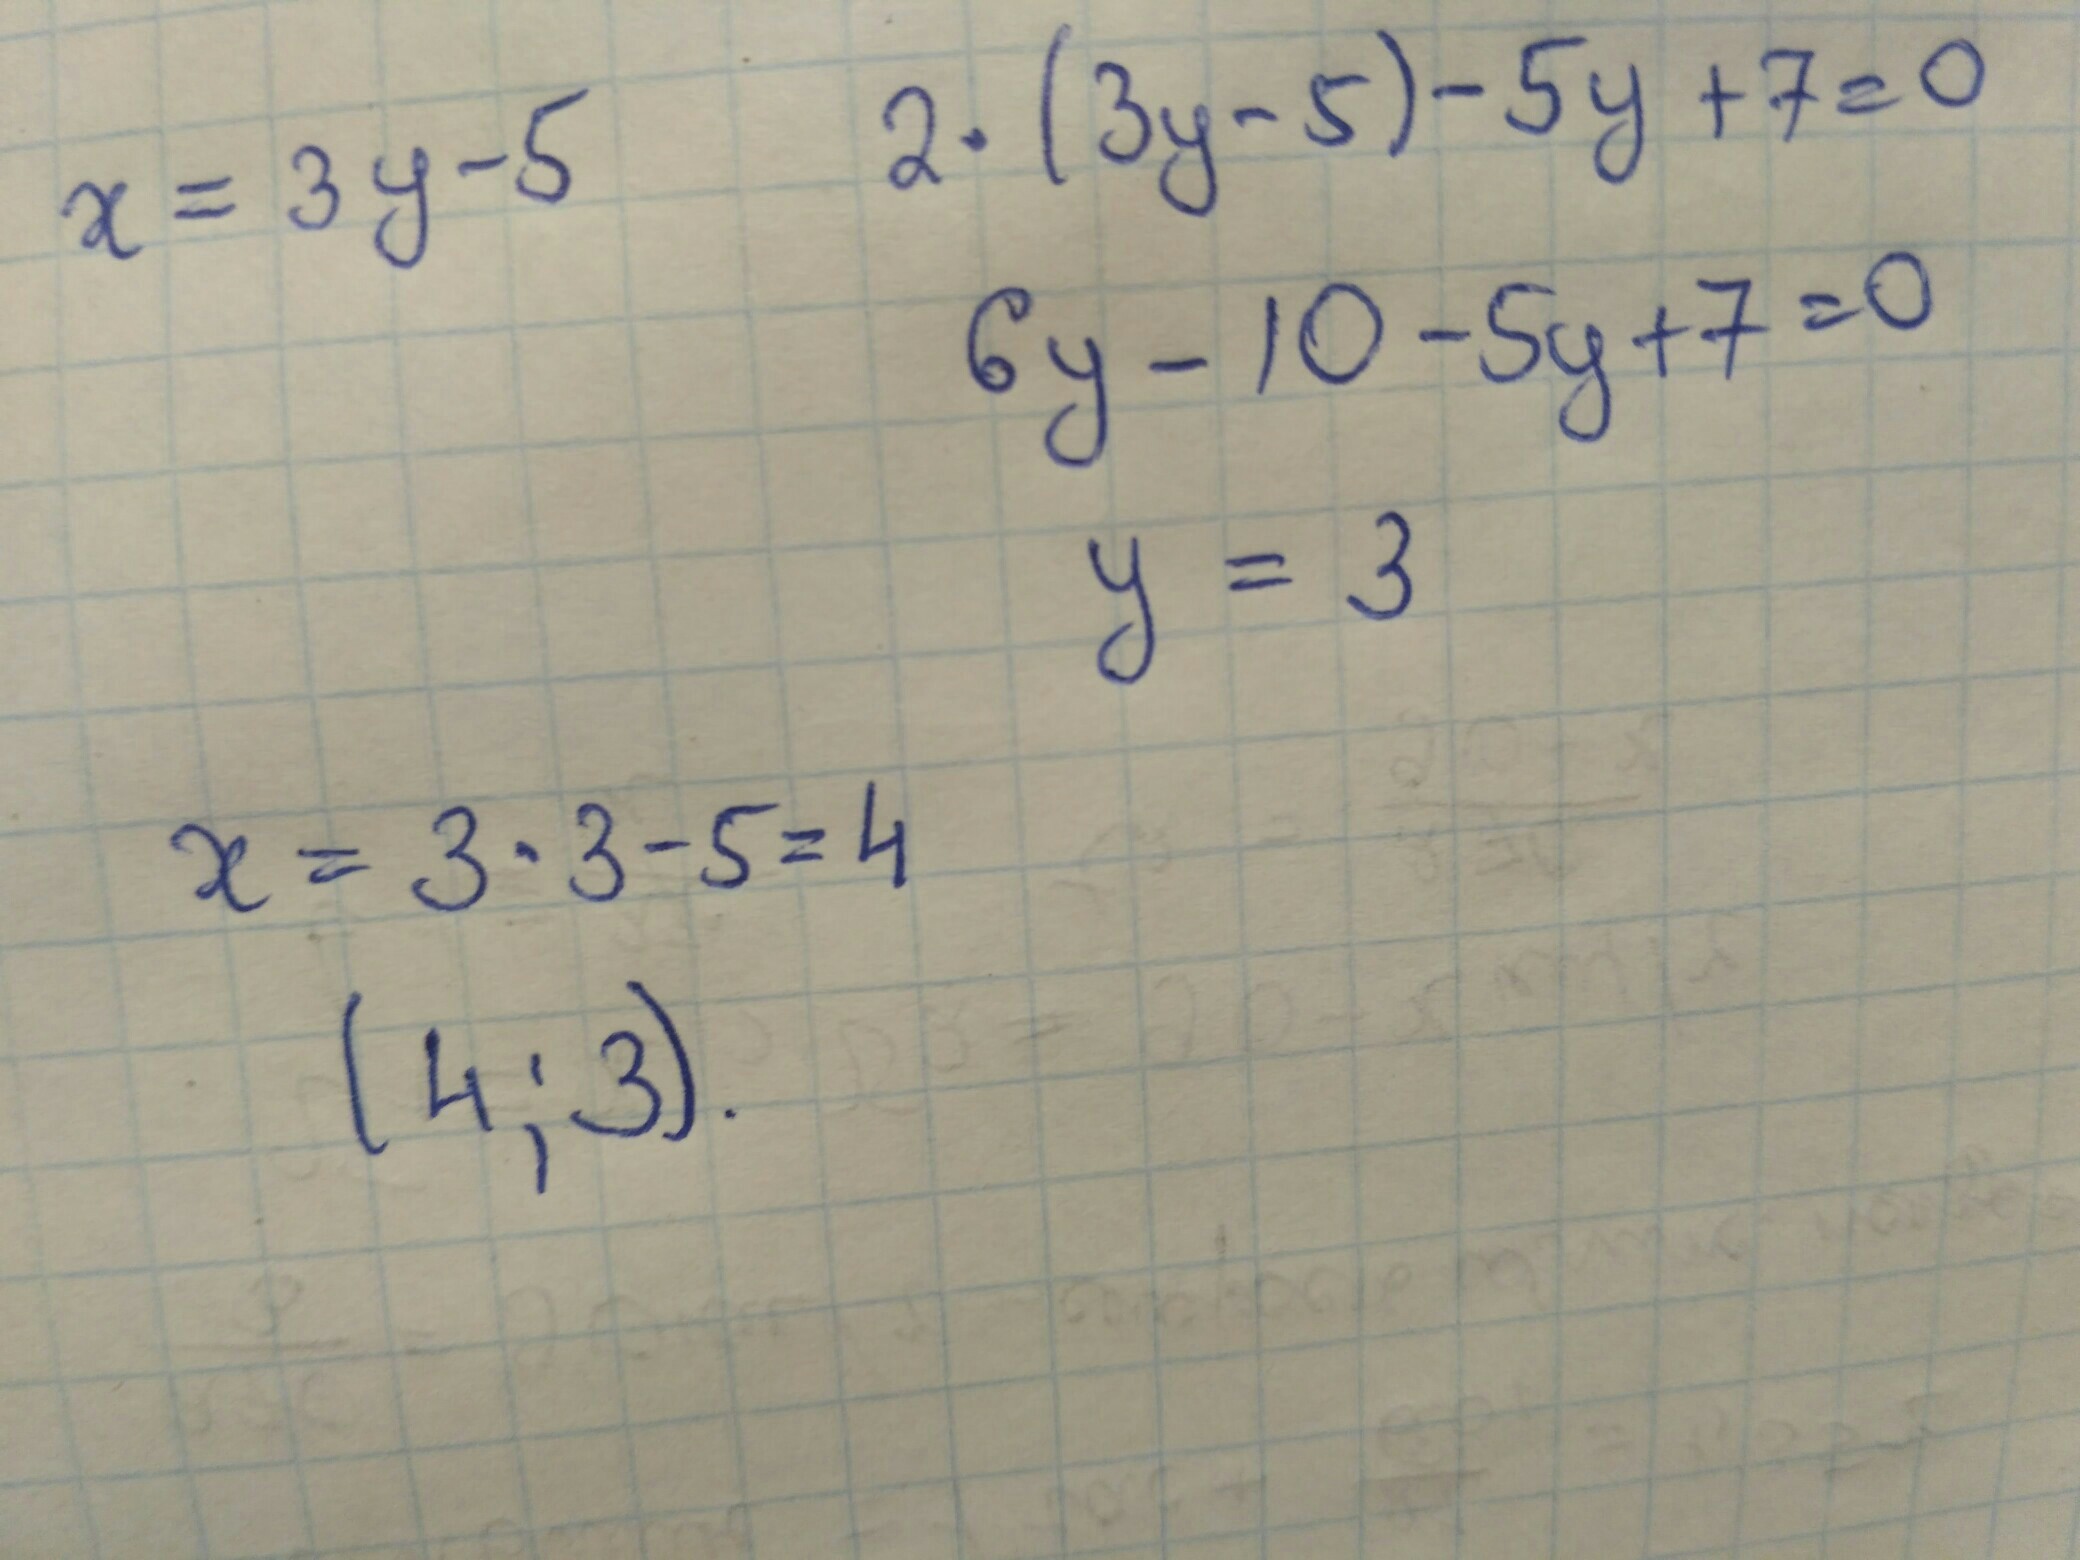 x = 3y - 5
2 · (3y - 5) - 5y + 7 = 0
6y - 10 - 5y + 7 = 0
y = 3
x = 3 · 3 - 5 = 4
(4 ; 3).